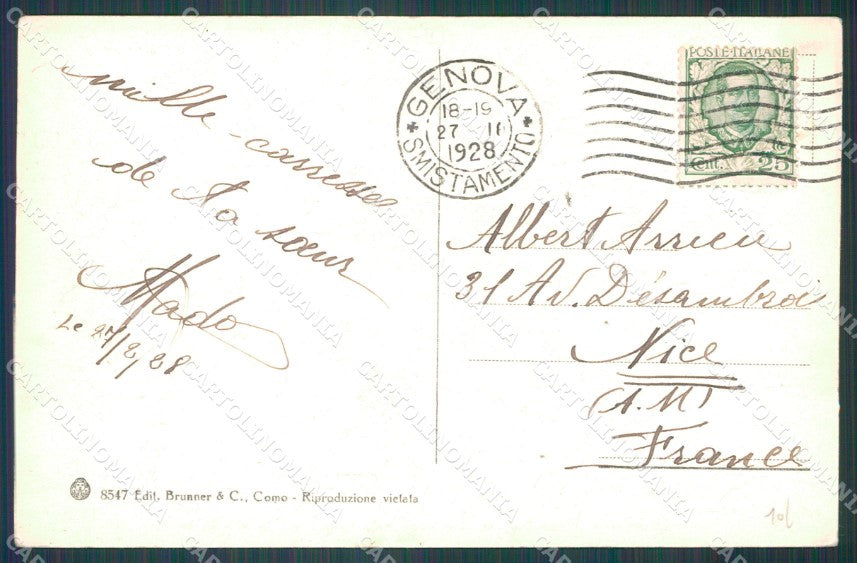 mille caresses
de ta sœur
Mado
Le 27/2/28
8547 Edit. Brunner & C., Como - Riproduzione vietata
GENOVA
18-19
27 II
1928
SMISTAMENTO
POSTE·ITALIANE
Cent. 25
Albert Arrieu
31 Av. Désambrois
Nice
(A.M)
France
10l
CARTOLINOMANIA